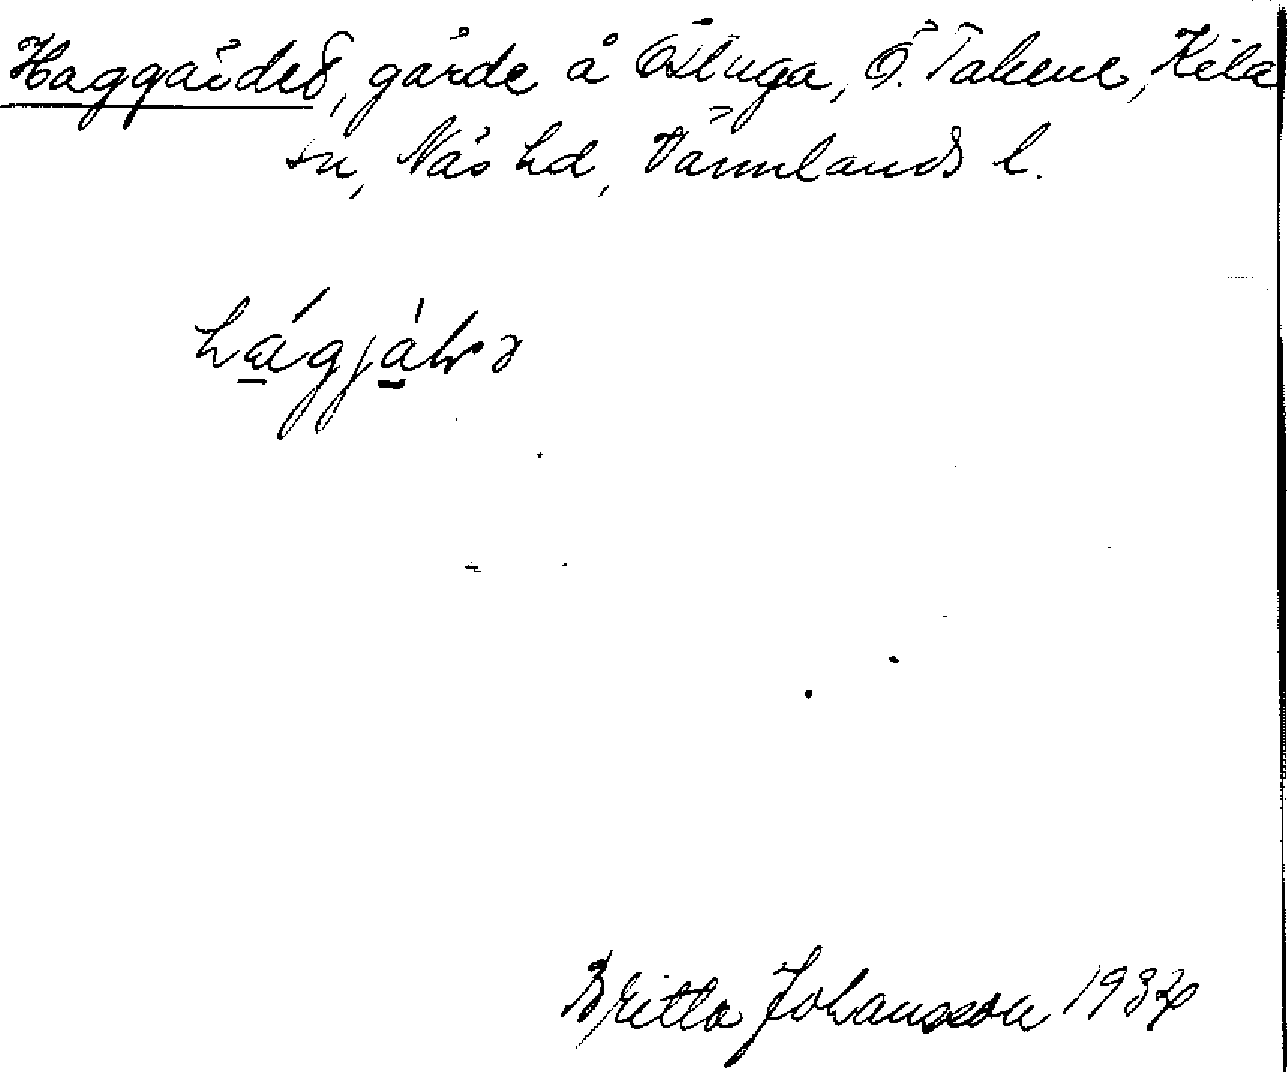 Haggärdet, gärde å Östuga, Ö. Takene, Kila
sn, Näs hd, Värmlands l.
Britta Johansson 1934